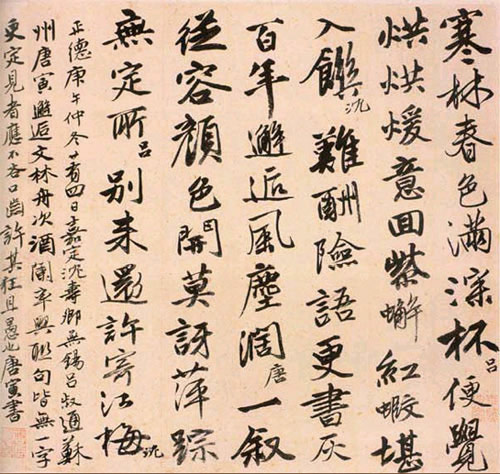 寒林春色滿深杯呂便覺
烘烘煖意回紫蠏紅蝦堪
入饌沈難酬險語更書灰
百年邂逅風塵濶唐一叙
從容顏色開莫訝萍踪
無定所呂别来還許寄江梅沈
正德庚午仲冬廿有四日嘉定沈壽卿無錫呂叔通蘇
州唐寅邂逅文林舟次酒闌率興聯句皆無一字
更定見者應不吝口齒許其狂且愚也唐寅書